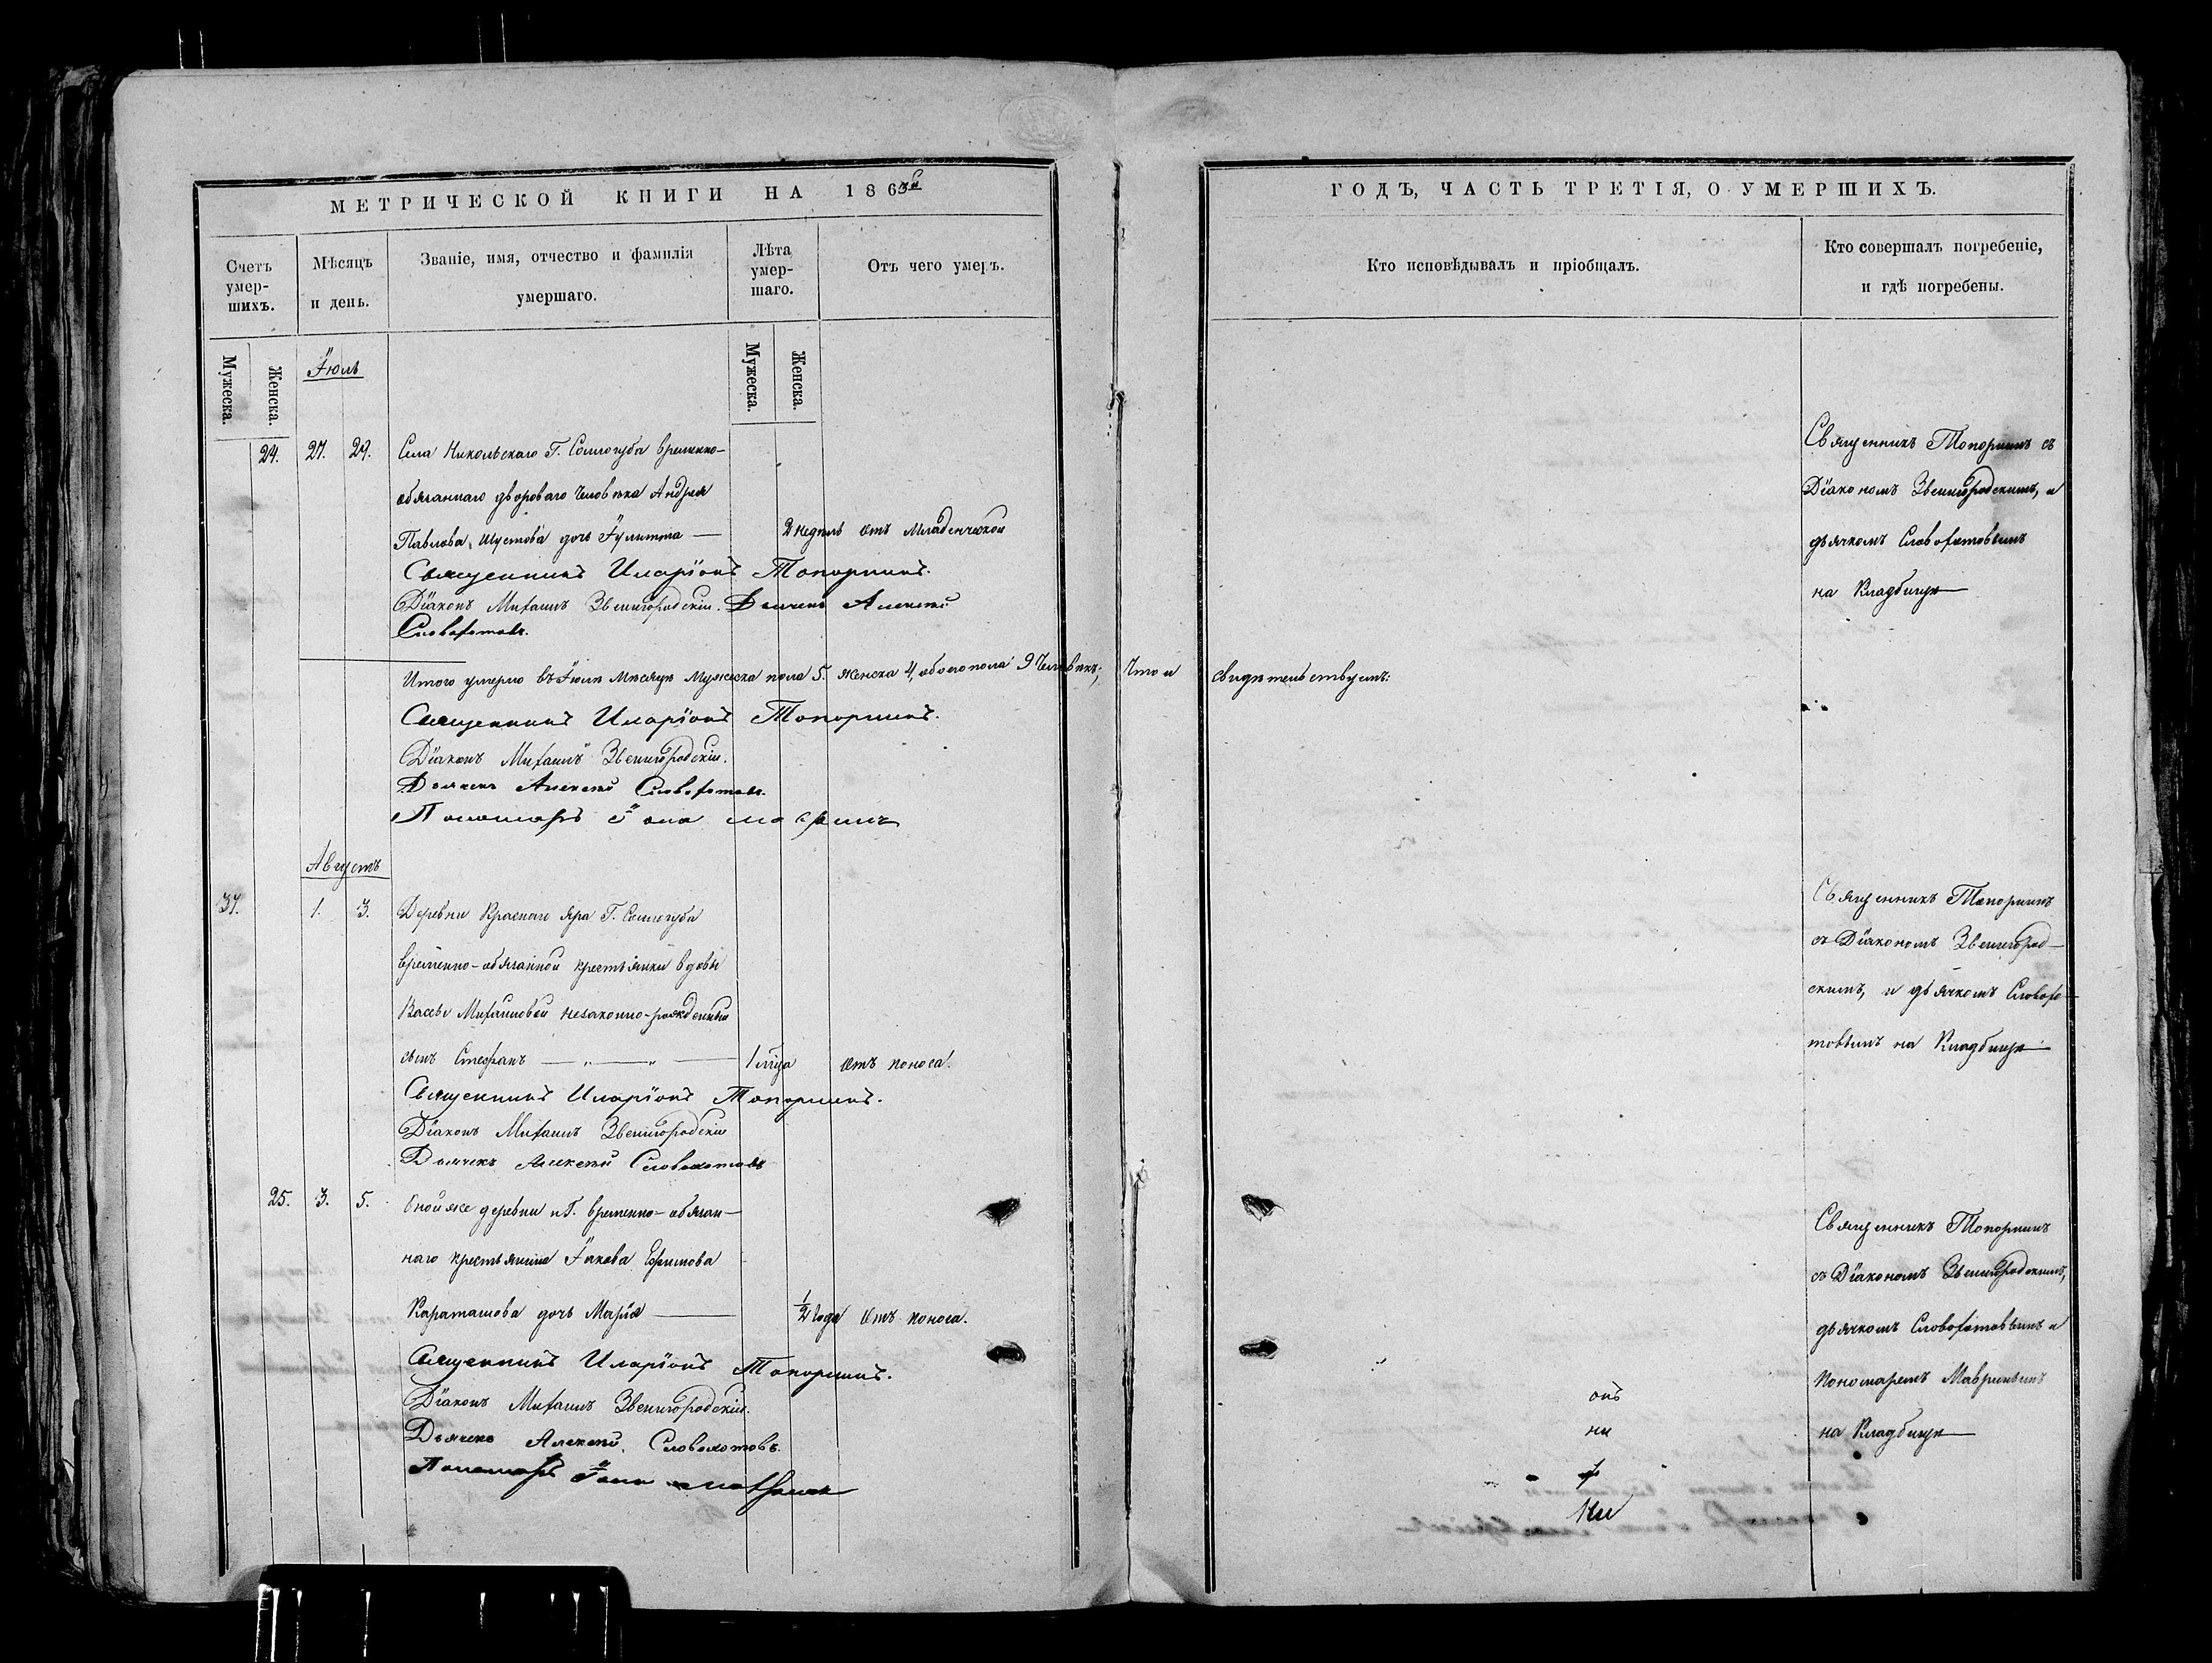 МЕТРИЧЕСКОЙ КНИГИ НА 1863й
Счетъ умер-шихъ.
Мѣсяцъ и день.
Званіе, имя, отчество и фамилія умершаго.
Лѣта умер-шаго.
Отъ чего умеръ.
Мужеска.
Женска.
Мужеска.
Женска.
Іюль
24. 27. 29. Села Никольскаго Г. Соллогуба временно-
обязаннаго двороваго человѣка Андрея
Павлова Шустова дочь Іулитта — 2 недѣль отъ младенческой
Священникъ Иларіонъ Топорнинъ.
Діаконъ Михаилъ Звенигородскій. Дьячекъ Алексѣй
Словохотовъ.
Итого умерло въ Іюлѣ мѣсяцѣ мужеска пола 5. женска 4, обоего пола 9 человѣкъ;
Священникъ Иларіонъ Топорнинъ.
Діаконъ Михаилъ Звенигородскій.
Дьячекъ Алексѣй Словохотовъ.
Пономарь Іона
Августъ
37. 1. 3. Деревни Краснаго Яра Г. Соллогуба
временно-обязанной крестьянки вдовы
Вассы Михайловой незаконно-рожденный
сынъ Стефанъ — „ — „ — 1 м̃ца отъ поноса.
Священникъ Иларіонъ Топорнинъ.
Діаконъ Михаилъ Звенигородскій
Дьячекъ Алексѣй Словохотовъ
25. 3. 5. Оной же деревни и Г. временно-обязан-
наго крестьянина Іакова Ефимова
Караташова дочь Марія — 1/2 года отъ поноса.
Священникъ Иларіонъ Топорнинъ.
Діаконъ Михаилъ Звенигородскій.
Дьячекъ Алексѣй Словохотовъ.
Пономарь Іона
ГОДЪ, ЧАСТЬ ТРЕТІЯ, О УМЕРШИХЪ.
Кто исповѣдывалъ и пріобщалъ.
Кто совершалъ погребеніе, и гдѣ погребены.
Священникъ Топорнинъ съ
Діакономъ Звенигородскимъ, и
дьячкомъ Словохотовымъ
на Кладбищѣ —
что и свидѣтельствуемъ:
Священникъ Топорнинъ
съ Діакономъ Звенигород-
скимъ, и дьячкомъ Словохо-
товымъ на Кладбищѣ —
Священникъ Топорнинъ
съ Діакономъ Звенигородскимъ,
дьячкомъ Словохотовымъ и
пономаремъ Мавринымъ
на Кладбищѣ —